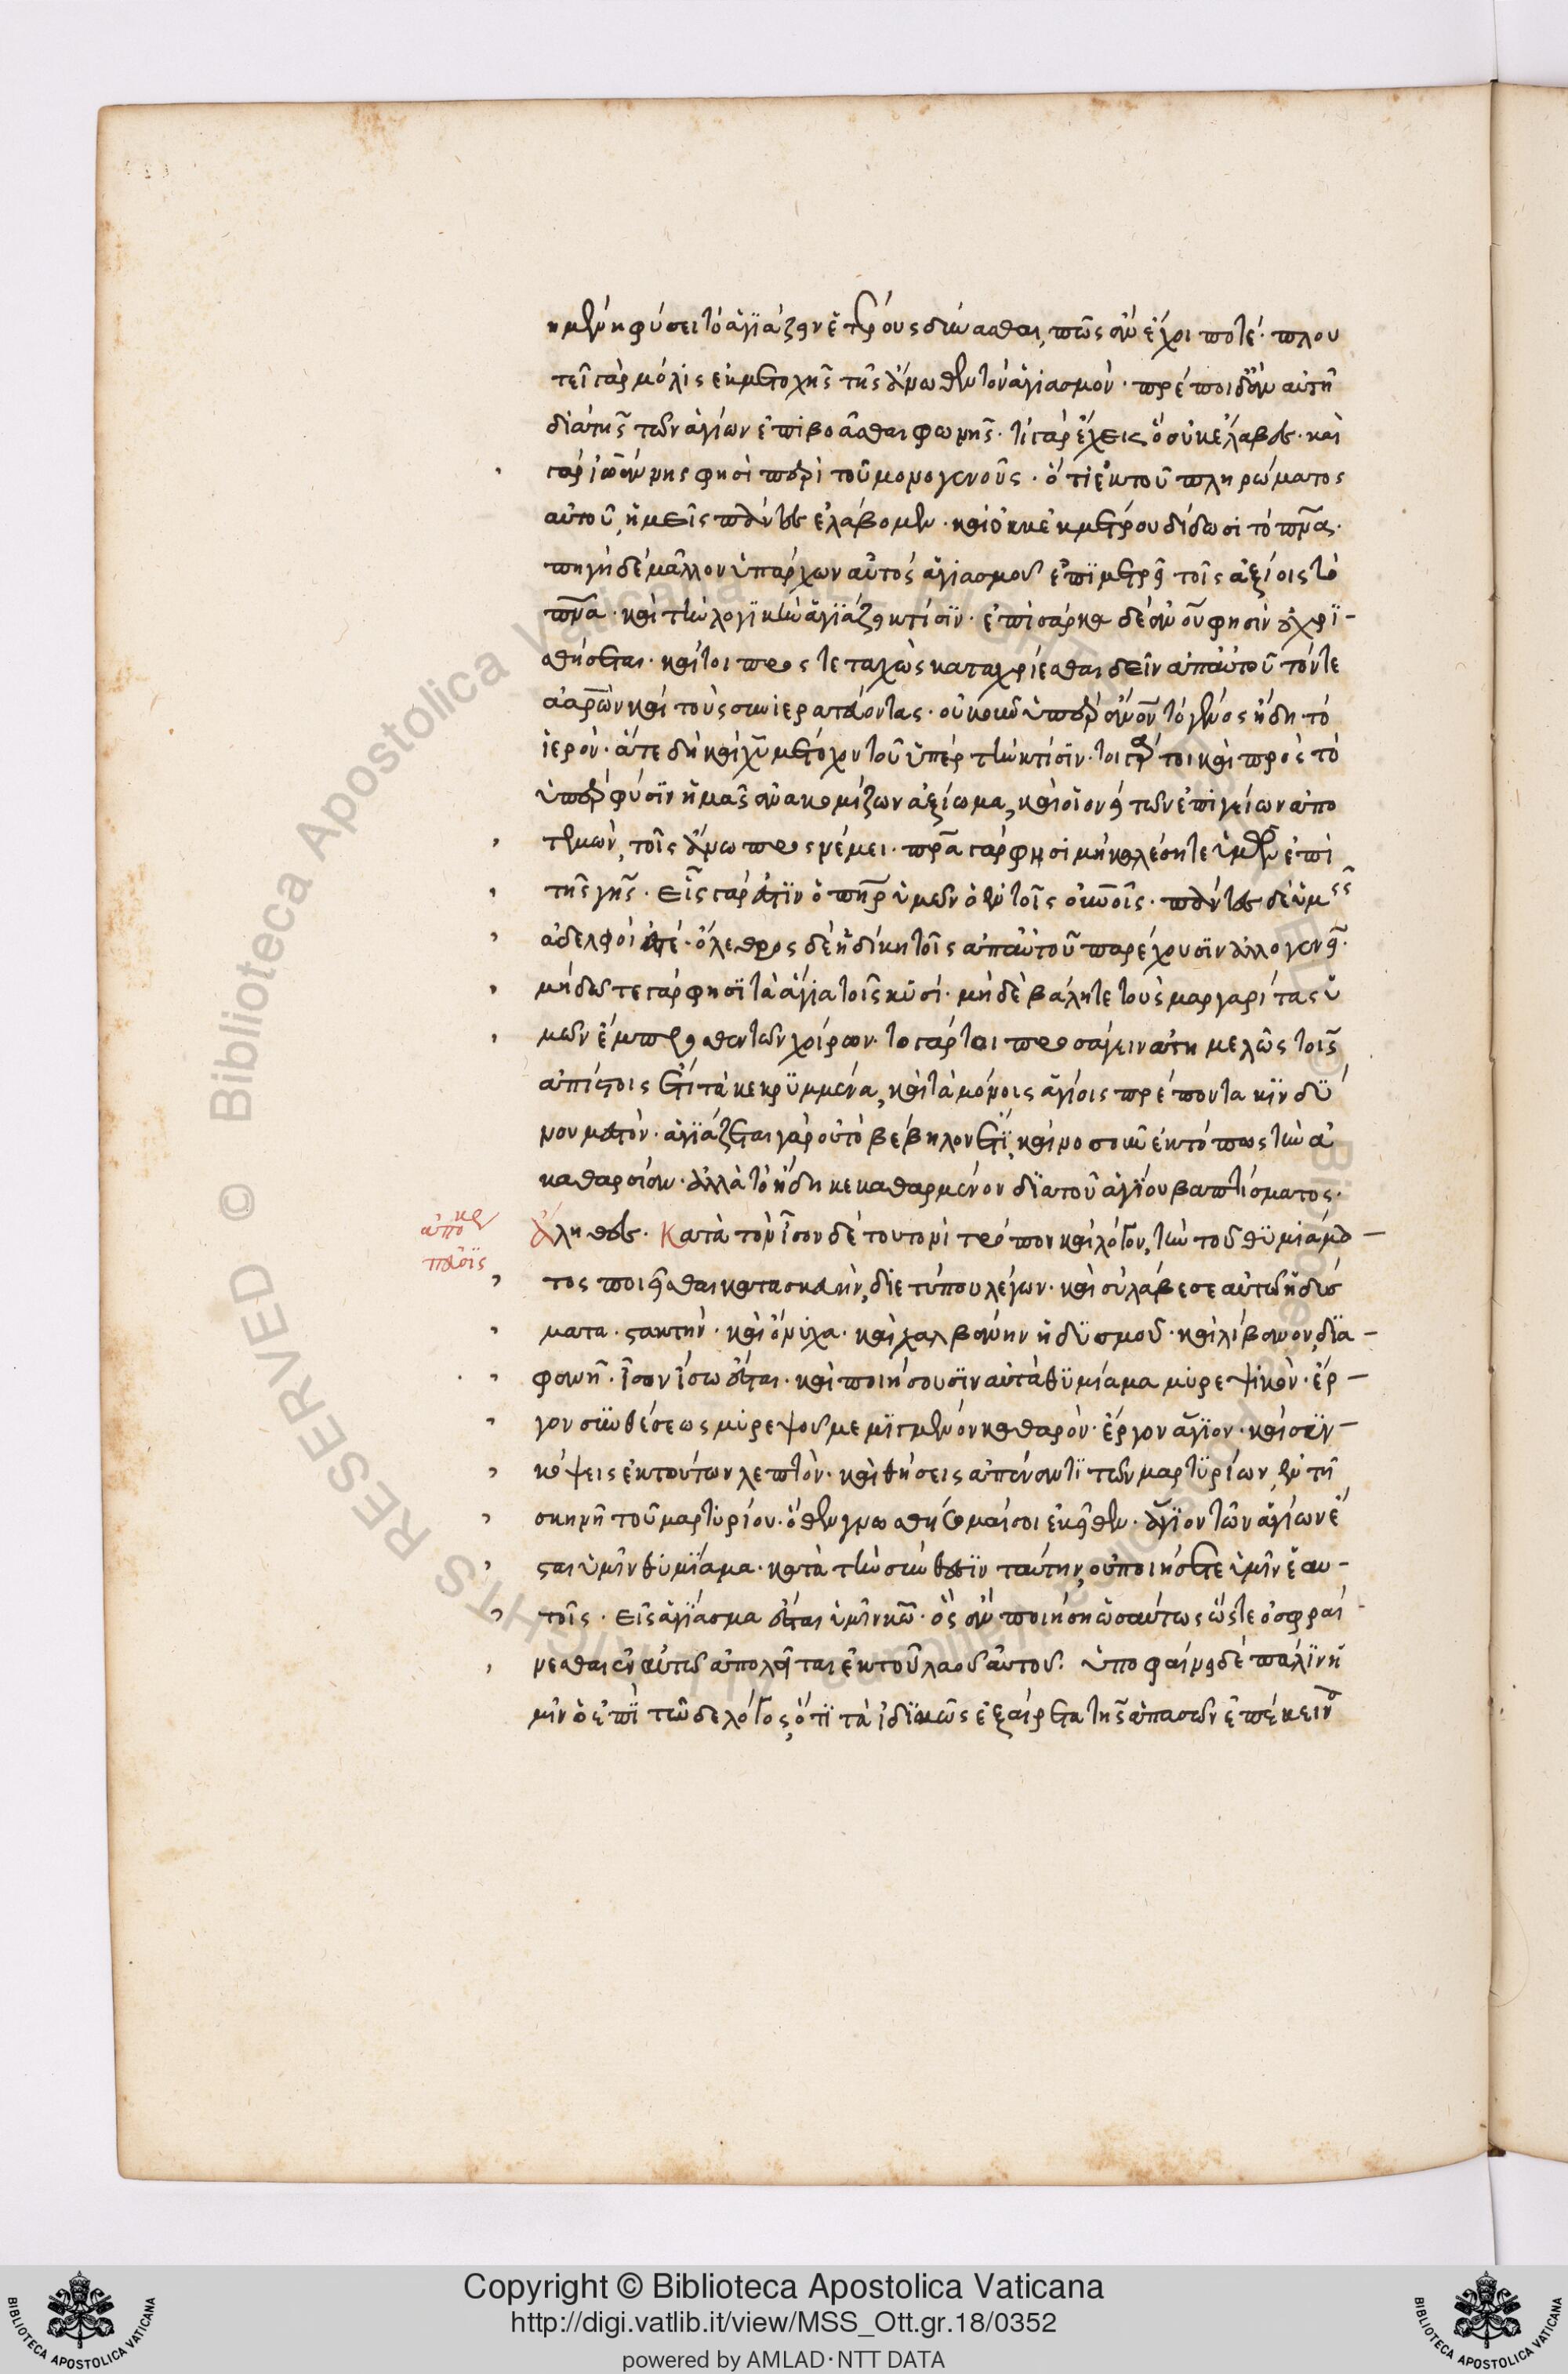 ημῶν ἡ φύσει τὸ ἁγιάζειν ἑτέρους δύνασθαι, πῶς ἂν ἔχοι ποτέ· πλου
τεῖ γὰρ μόλις ἐκ μετοχῆς τῆς ἄνωθεν τὸν ἁγιασμόν· πρέποι δ' ἂν αὐτῇ
διὰ τῆς τῶν ἁγίων ἐπιβοᾶσθαι φωνῆς· τί γὰρ ἔχεις ὃ οὐκ ἔλαβες· καὶ
γὰρ ἰωάννης φησὶ περὶ τοῦ μονογενοῦς· ὅτι ἐκ τοῦ πληρώματος
αὐτοῦ, ἡμεῖς πάντες ἐλάβομεν· καὶ οὐκ ἐκ μέτρου δίδωσι τὸ πνα·
πηγὴ δὲ μᾶλλον ὑπάρχων αὐτὸς ἁγιασμοῦ ἐπιμετρεῖ τοῖς ἀξίοις τὸ
πνα· καὶ τὴν λογικὴν ἁγιάζει κτίσιν· ἐπὶ σάρκα δὲ ἀνου φησὶν οὐ χρι-
σθήσεται· καίτοι προστεταχὼς καταχρίεσθαι δεῖν ἀπ' αὐτοῦ τόν τε
ἀαρὼν καὶ τοὺς συνιερατεύοντας· οὐκοῦν ὑπὲρ ἀνον τὸ γένος ἤδη τὸ
ἱερόν· ἅτε δὴ καὶ χυ μέτοχον τοῦ ὑπὲρ τὴν κτίσιν· τοιγάρτοι καὶ πρὸς τὸ
ὑπὲρ φύσιν ἡμᾶς ἀνακομίζων ἀξίωμα, καὶ οἱονεὶ τῶν ἐπιγείων ἀπο
τεμὼν, τοῖς ἄνω προσνέμει· πρα γὰρ φησι μὴ καλέσητε ὑμῶν ἐπὶ
τῆς γῆς· εἷς γάρ ἐστιν ὁ πηρ ὑμῶν ὁ ἐν τοῖς οὐνοῖς· πάντες δὲ ὑμεῖς
ἀδελφοί ἐστέ· ὄλεθρος δὲ ἡ δίκη τοῖς ἀπ' αὐτοῦ παρέχουσιν ἀλλογενεῖ·
μὴ δῶτε γὰρ φησὶ τὰ ἅγια τοῖς κυσί· μὴ δὲ βάλητε τοὺς μαργαρίτας ὑ
μῶν ἔμπροσθεν τῶν χοίρων· τὸ γάρ τοι προσάγειν ἀτημελῶς τοῖς
ἀπίστοις ἔτι τὰ κεκρυμμένα, καὶ τὰ μόνοις ἁγίοις πρέποντα κινδύ
νου μεστόν· ἁγιάζεται γὰρ οὐ τὸ βέβηλον ἔτι, καὶ νοσοῦν ἐκτόπως τὴν ἀ
καθαρσίαν· ἀλλὰ τὸ ἤδη κεκαθαρμένον διὰ τοῦ ἁγίου βαπτίσματος·
ἀληθές· Κατὰ τὸν ἴσον δὲ τουτονὶ τρόπον καὶ λόγον, τὴν τοῦ θυμιάμα-
τος ποιεῖσθαι κατασκευὴν, διετύπου λέγων· καὶ σὺ λάβε σεαυτῷ ἡδύσ
ματα· στακτήν· καὶ ὄνυχα· καὶ χαλβάνην ἡδυσμοῦ· καὶ λίβανον δια-
φανῆ· ἴσον ἴσω ἔσται· καὶ ποιήσουσιν αὐτὰ θυμίαμα μυρεψικόν· ἔρ-
γον συνθέσεως μυρεψοῦ μεμιγμένον καθαρόν· ἔργον ἅγιον· καὶ συγ-
κόψεις ἐκ τούτων λεπτόν· καὶ θήσεις ἀπέναντι τῶν μαρτυρίων, ἐν τῇ
σκηνῇ τοῦ μαρτυρίου· ὅθεν γνωσθήσομαί σοι ἐκεῖθεν· ἅγιον τῶν ἁγίων ἔ
σται ὑμῖν θυμίαμα· κατὰ τὴν σύνθεσιν ταύτην, οὐ ποιήσετε ὑμῖν ἑαυ-
τοῖς· εἰς ἁγίασμα ἔσται ὑμῖν κω· ὃς ἂν ποιήσῃ ὡσαύτως ὥστε ὀσφραί
νεσθαι ἐν αὐτῷ ἀπολεῖται ἐκ τοῦ λαοῦ αὐτοῦ· ὑποφαίνει δὲ πάλιν ἡ
μῖν ὁ ἐπὶ τῷδε λόγος, ὅτι τὰ ἰδικῶς ἐξαίρετα τῆς ἁπασῶν ἐπέκεινα
ἀπόκρ
πλοϊς
Copyright © Biblioteca Apostolica Vaticana
http://digi.vatlib.it/view/MSS_Ott.gr.18/0352
powered by AMLAD·NTT DATA